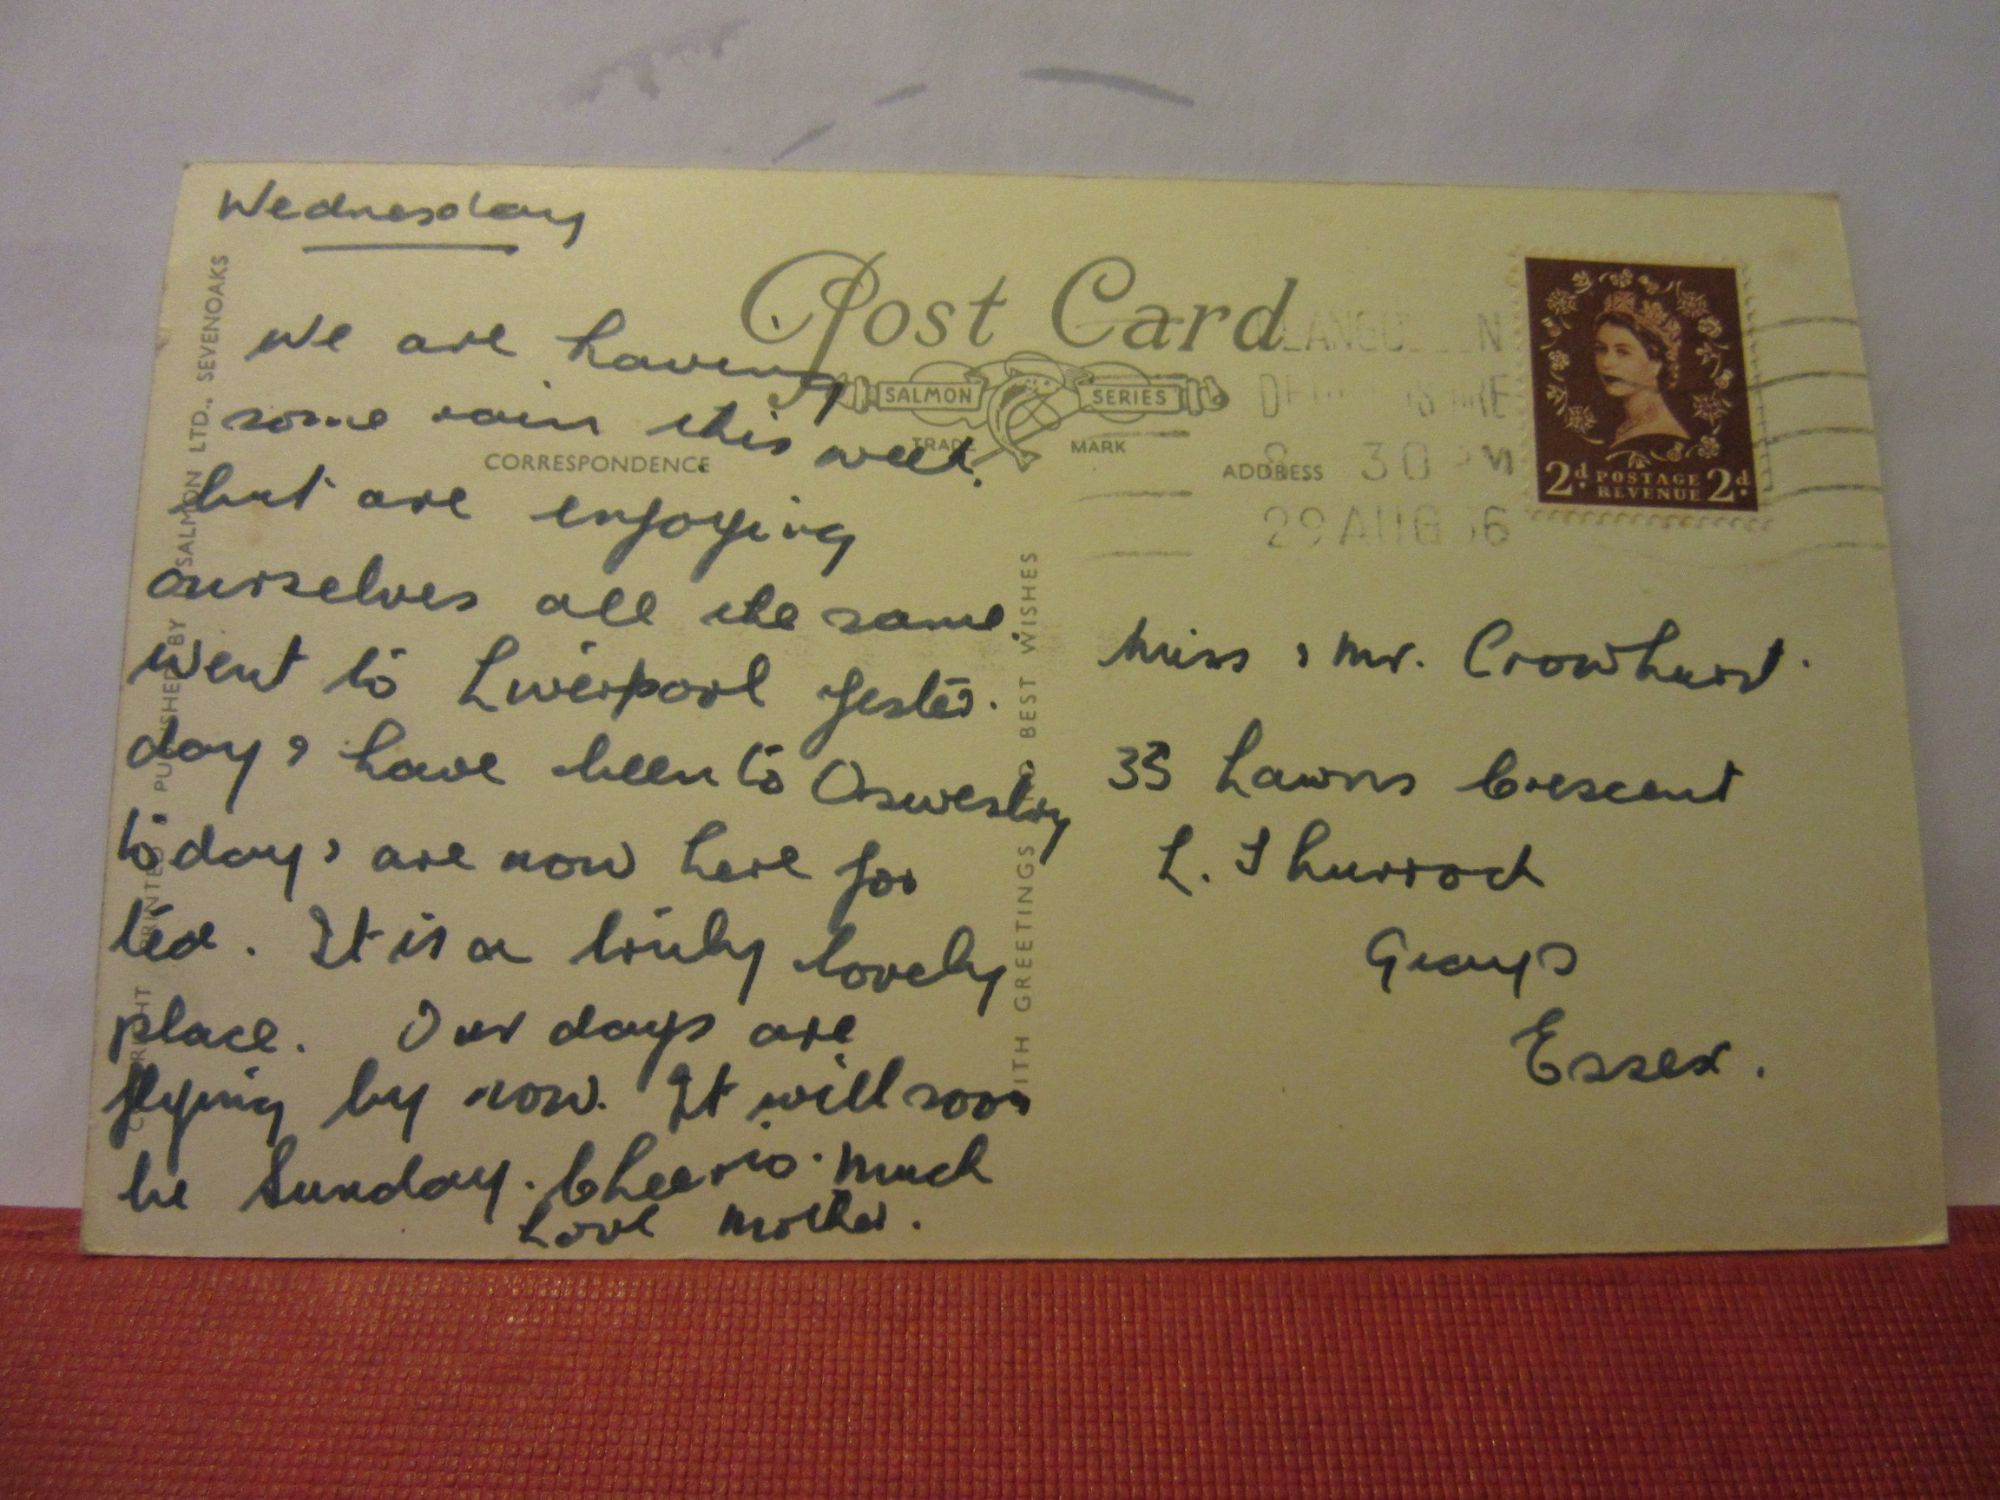 Wednesday
We are having
some rain this week.
but are enjoying
ourselves all the same.
Went to Liverpool yester.
day & have been to Oswestry
today & are now here for
tea. It is a truly lovely
place. Our days are
flying by now. It will soon
be Sunday. Cheerio. Much
Love Mother.
Post Card
SALMON SERIES
TRADE MARK
CORRESPONDENCE
ADDRESS
30 PM
29 AUG
2d. POSTAGE REVENUE 2d.
Miss & Mr. Crowhurst.
35 Lawns Crescent
L. Thurrock
Grays
Essex.
PRINTED PUBLISHED BY SALMON LTD., SEVENOAKS
WITH GREETINGS BEST WISHES